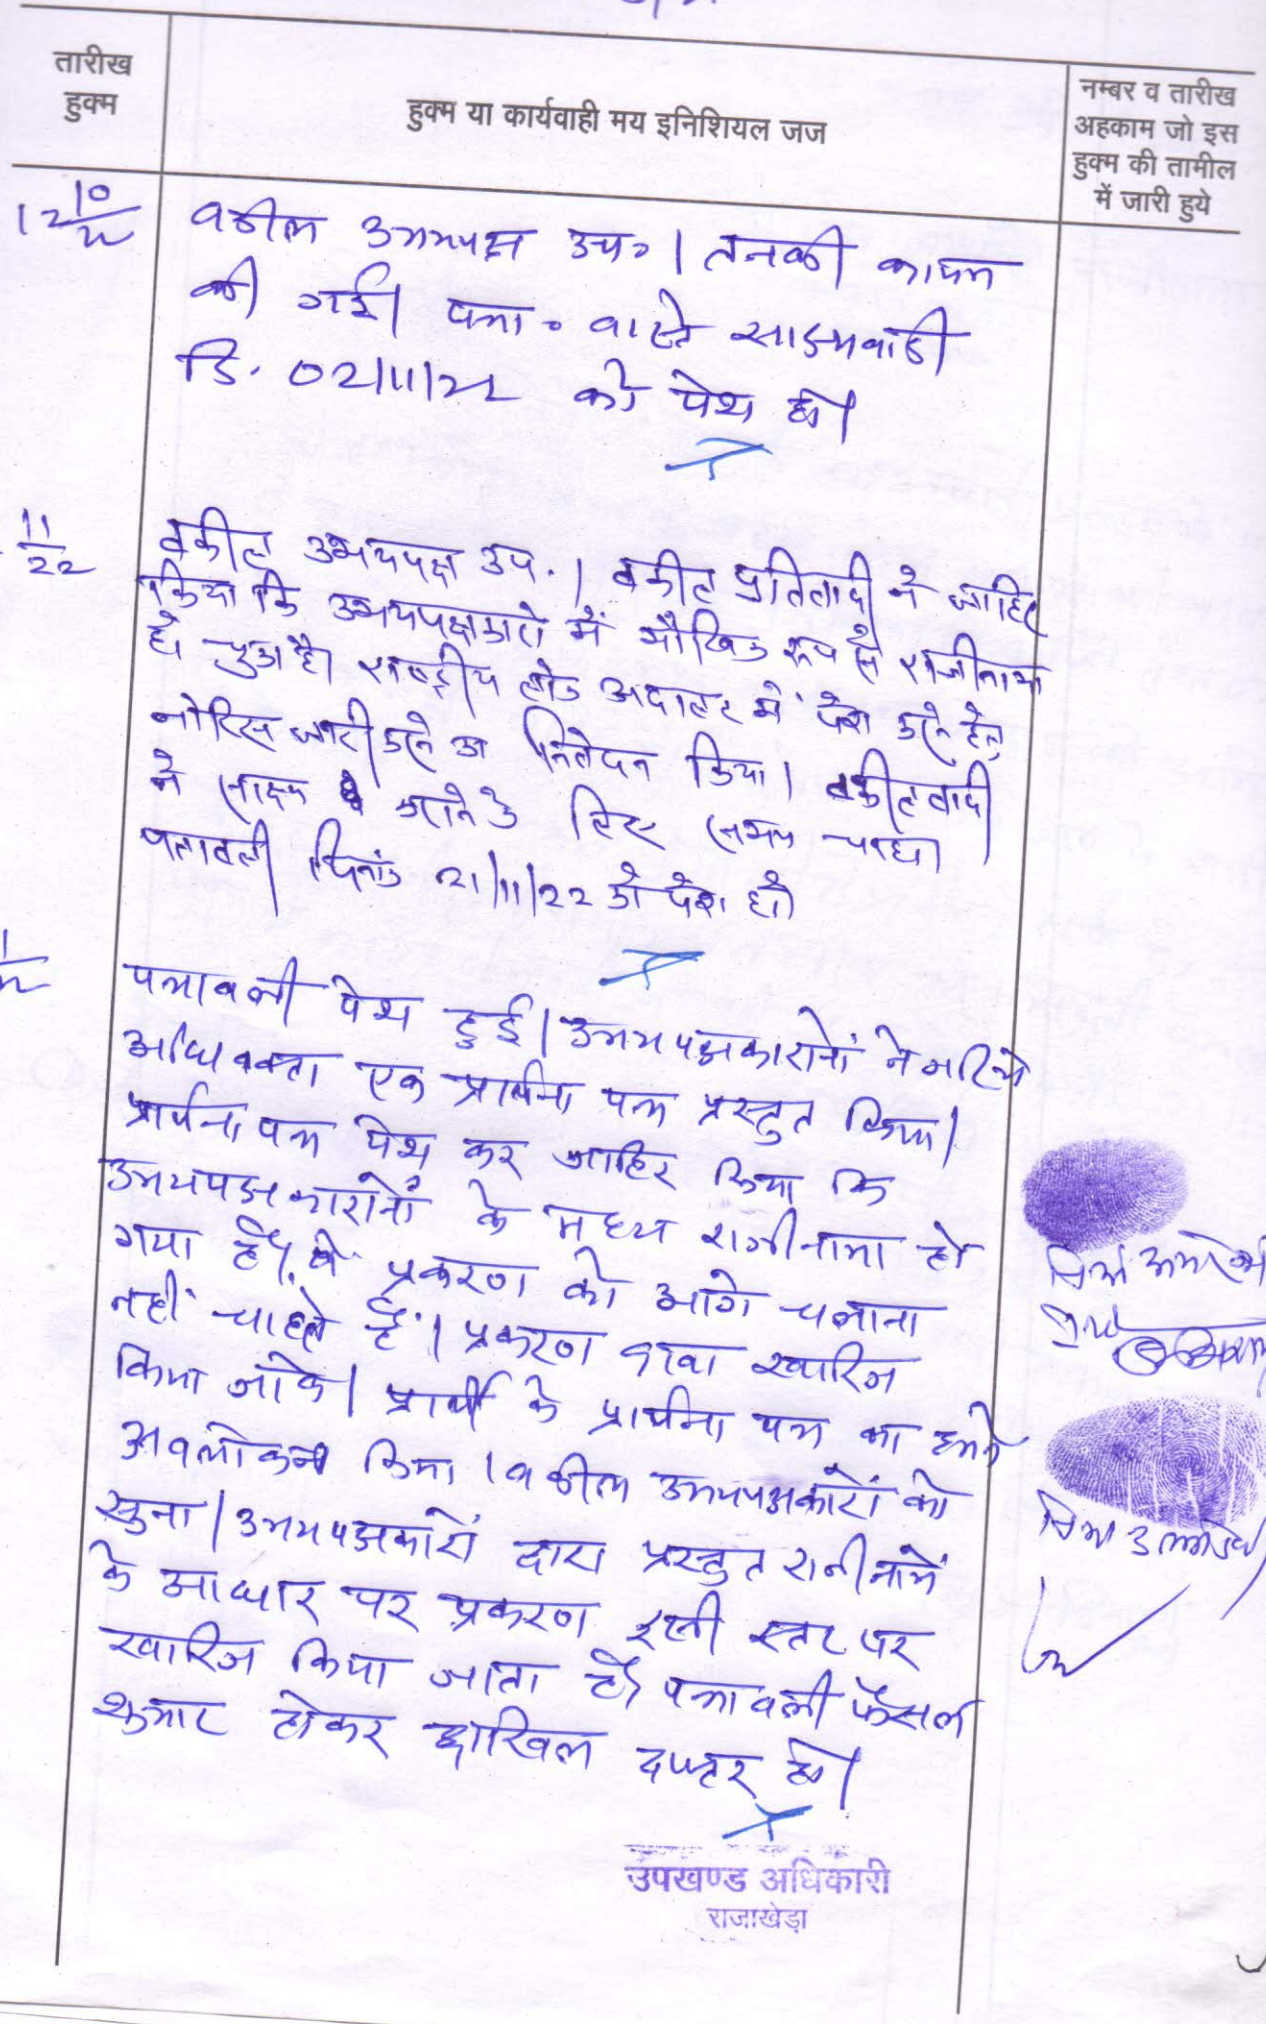 तारीख
हुक्म
हुक्म या कार्यवाही मय इनिशियल जज
नम्बर व तारीख
अहकाम जो इस
हुक्म की तामील
में जारी हुये
12 10/22
वकील उभयपक्ष उप० । तनकी कायम
की गई। पत्रा० वास्ते साक्ष्यवादी
दि. 02/11/22 को पेश हो।
11/22
वकील उभयपक्ष उप. । वकील प्रतिवादी ने जाहिर
किया कि उभयपक्षकारो में मौखिक रूप से राजीनामा
हो चुका है। राष्ट्रीय लोक अदालत में पेश करने हेतु
नोटिस जारी करने का निवेदन किया। वकील वादी
ने साक्ष्य कराने के लिए समय चाहा।
पत्रावली दिनांक 21/11/22 को पेश हो
पत्रावली पेश हुई। उभयपक्षकारोनों ने जरिये
अधिवक्ता एक प्रार्थना पत्र प्रस्तुत किया।
प्रार्थना पत्र पेश कर जाहिर किया कि
उभयपक्षकारोनों के मध्य राजीनामा हो
गया है। वे प्रकरण को आगे चलाना
नहीं चाहते हैं। प्रकरण दावा खारिज
किया जावे। प्रार्थी के प्रार्थना पत्र का हमने
अवलोकन किया। वकील उभयपक्षकारों को
सुना। उभयपक्षकारों द्वारा प्रस्तुत राजीनामें
के आधार पर प्रकरण इसी स्तर पर
खारिज किया जाता है। पत्रावली फैसल
शुमार होकर दाखिल दफ्तर हो।
उपखण्ड अधिकारी
राजाखेड़ा